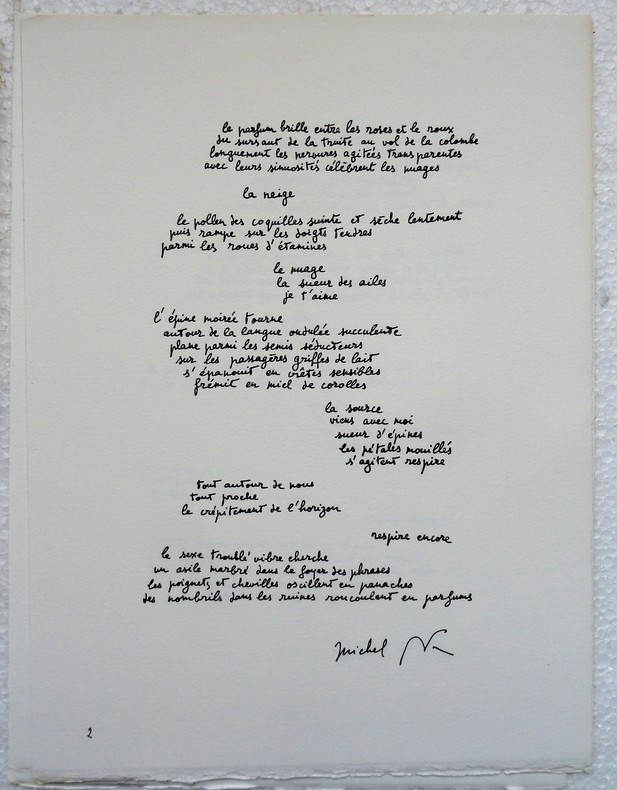 le parfum brille entre les roses et le roux
du sursaut de la truite au vol de la colombe
longuement les nervures agitées transparentes
avec leurs sinuosités célèbrent les nuages
la neige
le pollen des coquilles suinte et sèche lentement
puis rampe sur les doigts tendres
parmi les roues d'étamines
le nuage
la sueur des ailes
je t'aime
l'épine moirée tourne
autour de la langue ondulée succulente
plane parmi les semis séducteurs
sur les passagères griffes de lait
s'épanouit en crêtes sensibles
frémit en miel de corolles
la source
viens avec moi
sueur d'épines
les pétales mouillés
s'agitent respire
tout autour de nous
tout proche
le crépitement de l'horizon
respire encore
le sexe troublé vibre cherche
un asile marbré dans le foyer des phrases
les poignets et chevilles oscillent en panaches
des nombrils dans les ruines roucoulent en parfums
Michel
2